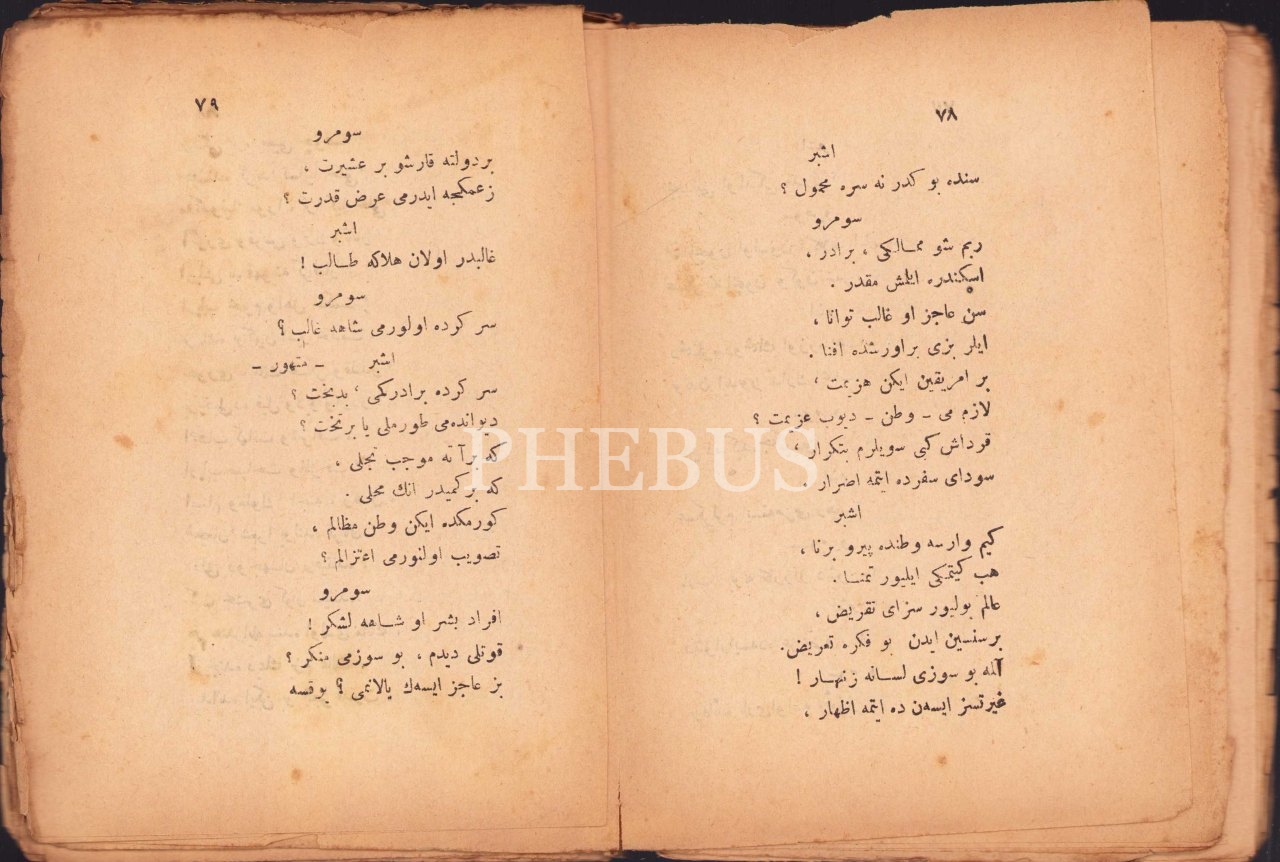 ٧٨
اشبر
سنده بو كدر نه سره محمول ؟
سومرو
ربم شو ممالكی ، برادر ،
اسكندره ایلمش مقدر .
سن عاجز او غالب توانا ،
ایلر بزی براورشده افنا .
بر امریقین ایكن هزیمت ،
لازم می ـ وطن ـ دیوب عزیمت ؟
قرداش كبی سویلرم بتكرار ،
سودای سفرده ایتمه اضرار .
اشبر
كیم وارسه وطنده پیرو برنا ،
هب كیتمكی ایلیور تمنا .
عالم بولیور سزای تقریض ،
برسنسین ایدن بو فكره تعریض .
آلمه بو سوزی لسانه زنهار !
غیرتسز ایسه‌ن ده ایتمه اظهار ،
٧٩
سومرو
بردولته قارشو بر عشیرت ،
زعمكجه ایدرمی عرض قدرت ؟
اشبر
غالبدر اولان هلاكه طالب !
سومرو
سر كرده اولورمی شاهه غالب ؟
اشبر ـ متهور ـ
سر كرده برادركمی ، بدبخت ؟
دیوانده‌می طورملی یا برتخت ؟
كه برآته موجب تجلی ،
كه بركمیدر انك محلی .
كورمكده ایكن وطن مظالم ،
تصویب اولنورمی اعتزالم ؟
سومرو
افراد بشر او شاهه لشكر !
قوتلی دیدم ، بو سوزمی منكر ؟
بز عاجز ایسه‌ك یالانمی ؟ یوقسه
PHEBUS